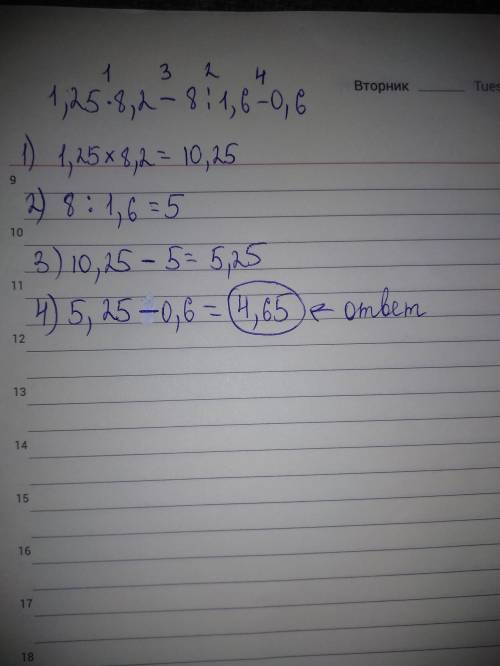 1 3 2 4
1,25·8,2-8:1,6-0,6
Вторник Tues
1) 1,25×8,2=10,25
9
2) 8:1,6=5
10
3) 10,25-5=5,25
11
4) 5,25-0,6=4,65 ← ответ
12
13
14
15
16
17
18